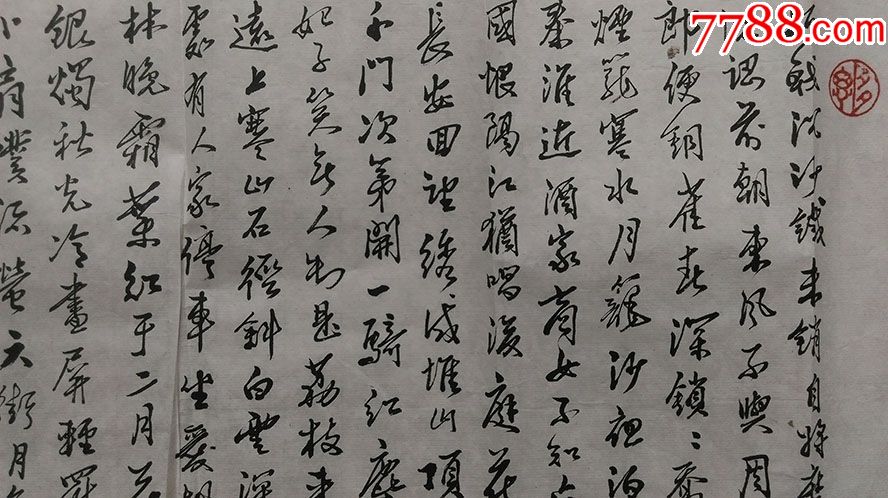 7788.com
戟沉沙鐵未銷自將磨
認前朝東風不與周
郎便銅雀春深鎖二喬
煙籠寒水月籠沙夜泊
秦淮近酒家商女不知亡
國恨隔江猶唱後庭花
長安回望繡成堆山頂
千門次第開一騎紅塵
妃子笑無人知是荔枝來
遠上寒山石徑斜白雲深
處有人家停車坐愛楓
林晚霜葉紅于二月花
銀燭秋光冷畫屏輕羅
小扇撲流螢天街夜